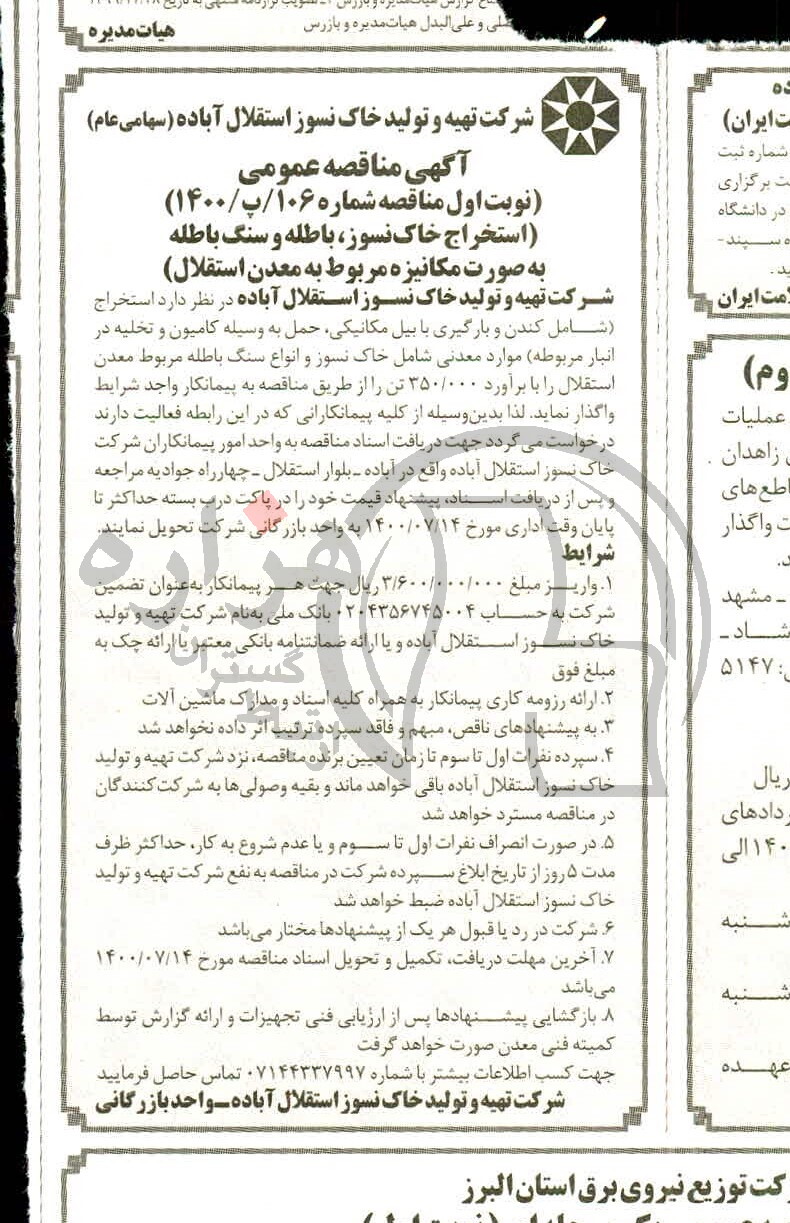 هیات‌مدیره
شرکت تهیه و تولید خاک نسوز استقلال آباده (سهامی عام)
آگهی مناقصه عمومی
(نوبت اول مناقصه شماره ۱۰۶/پ/۱۴۰۰)
(استخراج خاک‌نسوز، باطله و سنگ باطله
به صورت مکانیزه مربوط به معدن استقلال)
شرکت تهیه و تولید خاک نسوز استقلال آباده در نظر دارد استخراج
(شامل کندن و بارگیری با بیل مکانیکی، حمل به وسیله کامیون و تخلیه در
انبار مربوطه) موارد معدنی شامل خاک نسوز و انواع سنگ باطله مربوط معدن
استقلال را با برآورد ۳۵۰/۰۰۰ تن را از طریق مناقصه به پیمانکار واجد شرایط
واگذار نماید. لذا بدین‌وسیله از کلیه پیمانکارانی که در این رابطه فعالیت دارند
درخواست می گردد جهت دریافت اسناد مناقصه به واحد امور پیمانکاران شرکت
خاک نسوز استقلال آباده واقع در آباده ـ بلوار استقلال ـ چهارراه جوادیه مراجعه
و پس از دریافت اسناد، پیشنهاد قیمت خود را در پاکت درب بسته حداکثر تا
پایان وقت اداری مورخ ۱۴۰۰/۰۷/۱۴ به واحد بازرگانی شرکت تحویل نمایند.
شرایط
۱. واریز مبلغ ۳/۶۰۰/۰۰۰/۰۰۰ ریال جهت هر پیمانکار به‌عنوان تضمین
شرکت به حساب ۰۲۰۴۳۵۶۷۴۵۰۰۴ بانک ملی به‌نام شرکت تهیه و تولید
خاک نسوز استقلال آباده و یا ارائه ضمانتنامه بانکی معتبر یا ارائه چک به
مبلغ فوق
۲. ارائه رزومه کاری پیمانکار به همراه کلیه اسناد و مدارک ماشین آلات
۳. به پیشنهادهای ناقص، مبهم و فاقد سپرده ترتیب اثر داده نخواهد شد
۴. سپرده نفرات اول تا سوم تا زمان تعیین برنده مناقصه، نزد شرکت تهیه و تولید
خاک نسوز استقلال آباده باقی خواهد ماند و بقیه وصولی‌ها به شرکت‌کنندگان
در مناقصه مسترد خواهد شد
۵. در صورت انصراف نفرات اول تا سوم و یا عدم شروع به کار، حداکثر ظرف
مدت ۵ روز از تاریخ ابلاغ سپرده شرکت در مناقصه به نفع شرکت تهیه و تولید
خاک نسوز استقلال آباده ضبط خواهد شد
۶. شرکت در رد یا قبول هر یک از پیشنهادها مختار می‌باشد
۷. آخرین مهلت دریافت، تکمیل و تحویل اسناد مناقصه مورخ ۱۴۰۰/۰۷/۱۴
می‌باشد
۸. بازگشایی پیشنهادها پس از ارزیابی فنی تجهیزات و ارائه گزارش توسط
کمیته فنی معدن صورت خواهد گرفت
جهت کسب اطلاعات بیشتر با شماره ۰۷۱۴۴۳۳۷۹۹۷ تماس حاصل فرمایید
شرکت تهیه و تولید خاک نسوز استقلال آباده ـ واحد بازرگانی
هزاره
گستران
شماره ثبت
ت برگزاری
در دانشگاه
عملیات
زاهدان
ت واگذار
ـ مشهد
۵۱۴۷
ریال
عهده
شرکت توزیع نیروی برق استان البرز